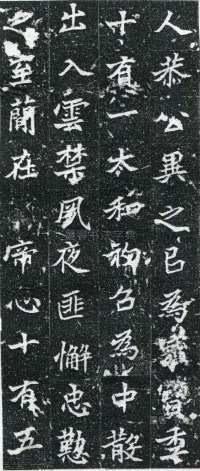 人恭公異之已為家寶年
十有一太和初召為中散
出入雲禁夙夜匪懈忠懃
之至簡在帝心十有五